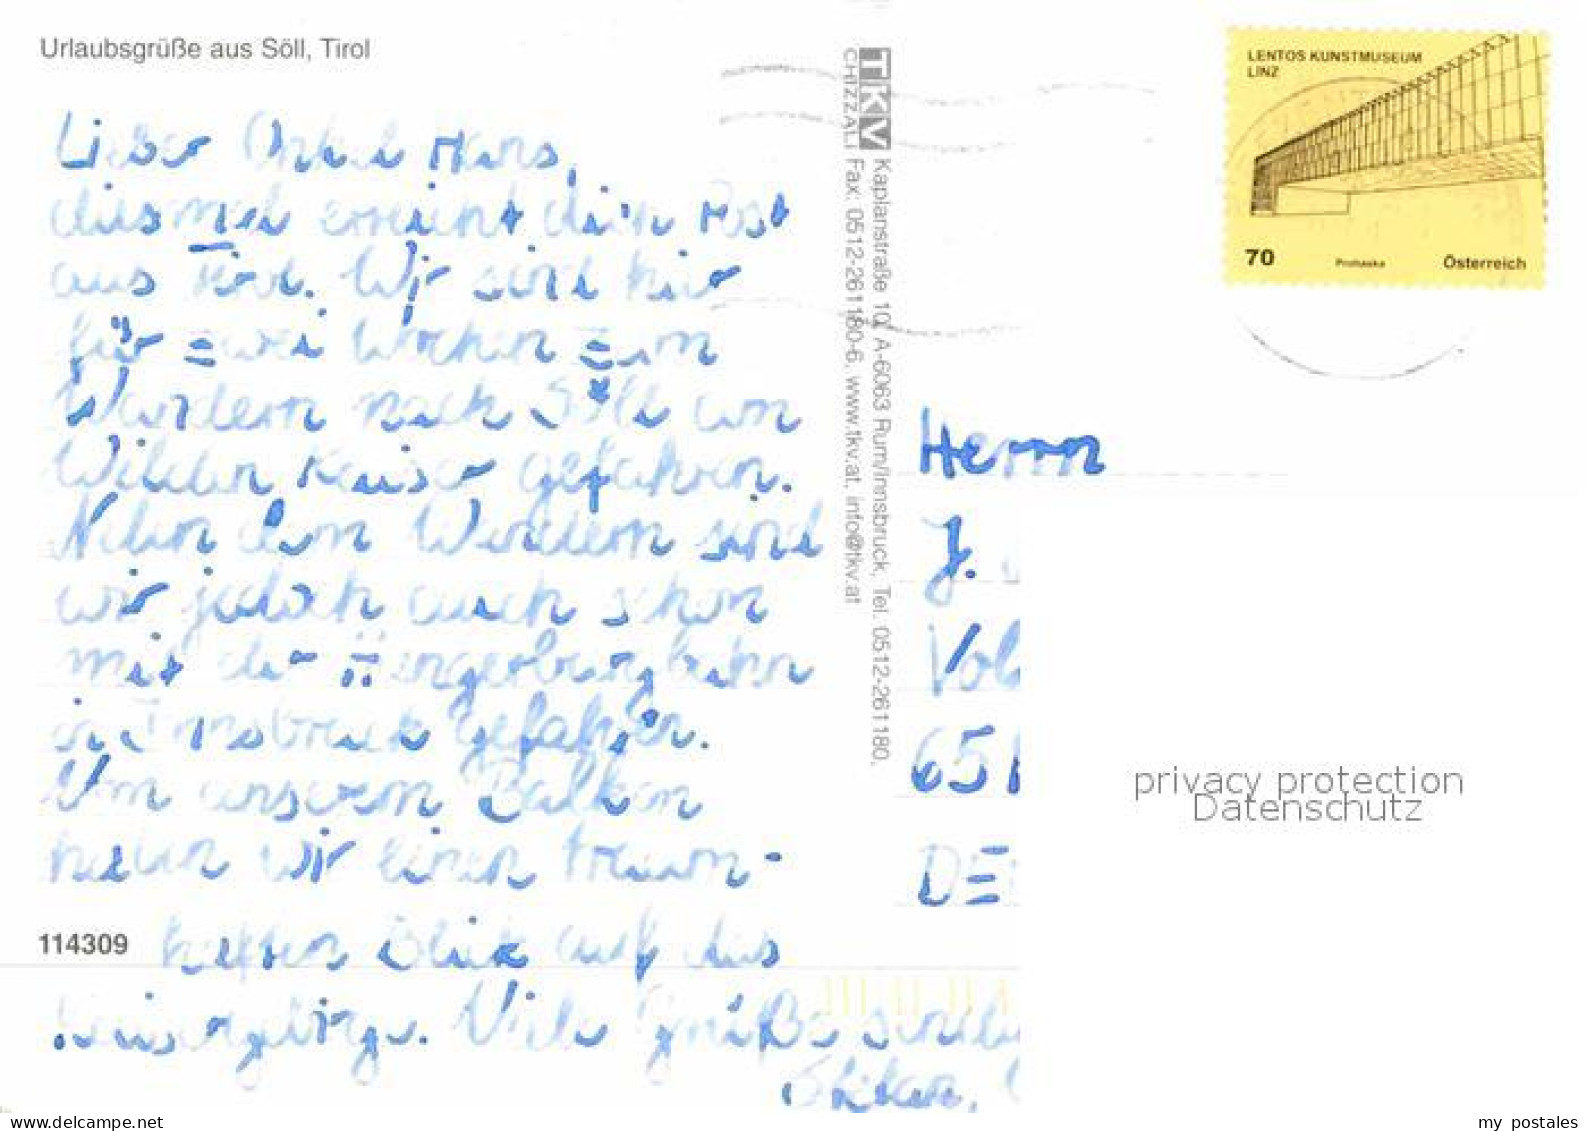 Urlaubsgrüße aus Söll, Tirol
Lieber Onkel Hans,
diesmal erreicht dich Post
aus Tirol. Wir sind hier
für zwei Wochen zum
Wandern nach Söll am
Wilden Kaiser gefahren.
Neben dem Wandern sind
wir jedoch auch schon
mit der Hungerburgbahn
in Innsbruck gefahren.
Von unserem Balkon
haben wir einen traum-
haften Blick auf das
Kaisergebirge. Viele Grüße
114309
TKV
CHIZZALI
Kaplanstraße 10, A-6063 Rum/Innsbruck, Tel. 0512-261180,
Fax: 0512-261180-6, www.tkv.at, info@tkv.at
LENTOS KUNSTMUSEUM
LINZ
70 Prohaska Österreich
Herrn
J.
651
DE
privacy protection
Datenschutz
delcampe.net
my postales